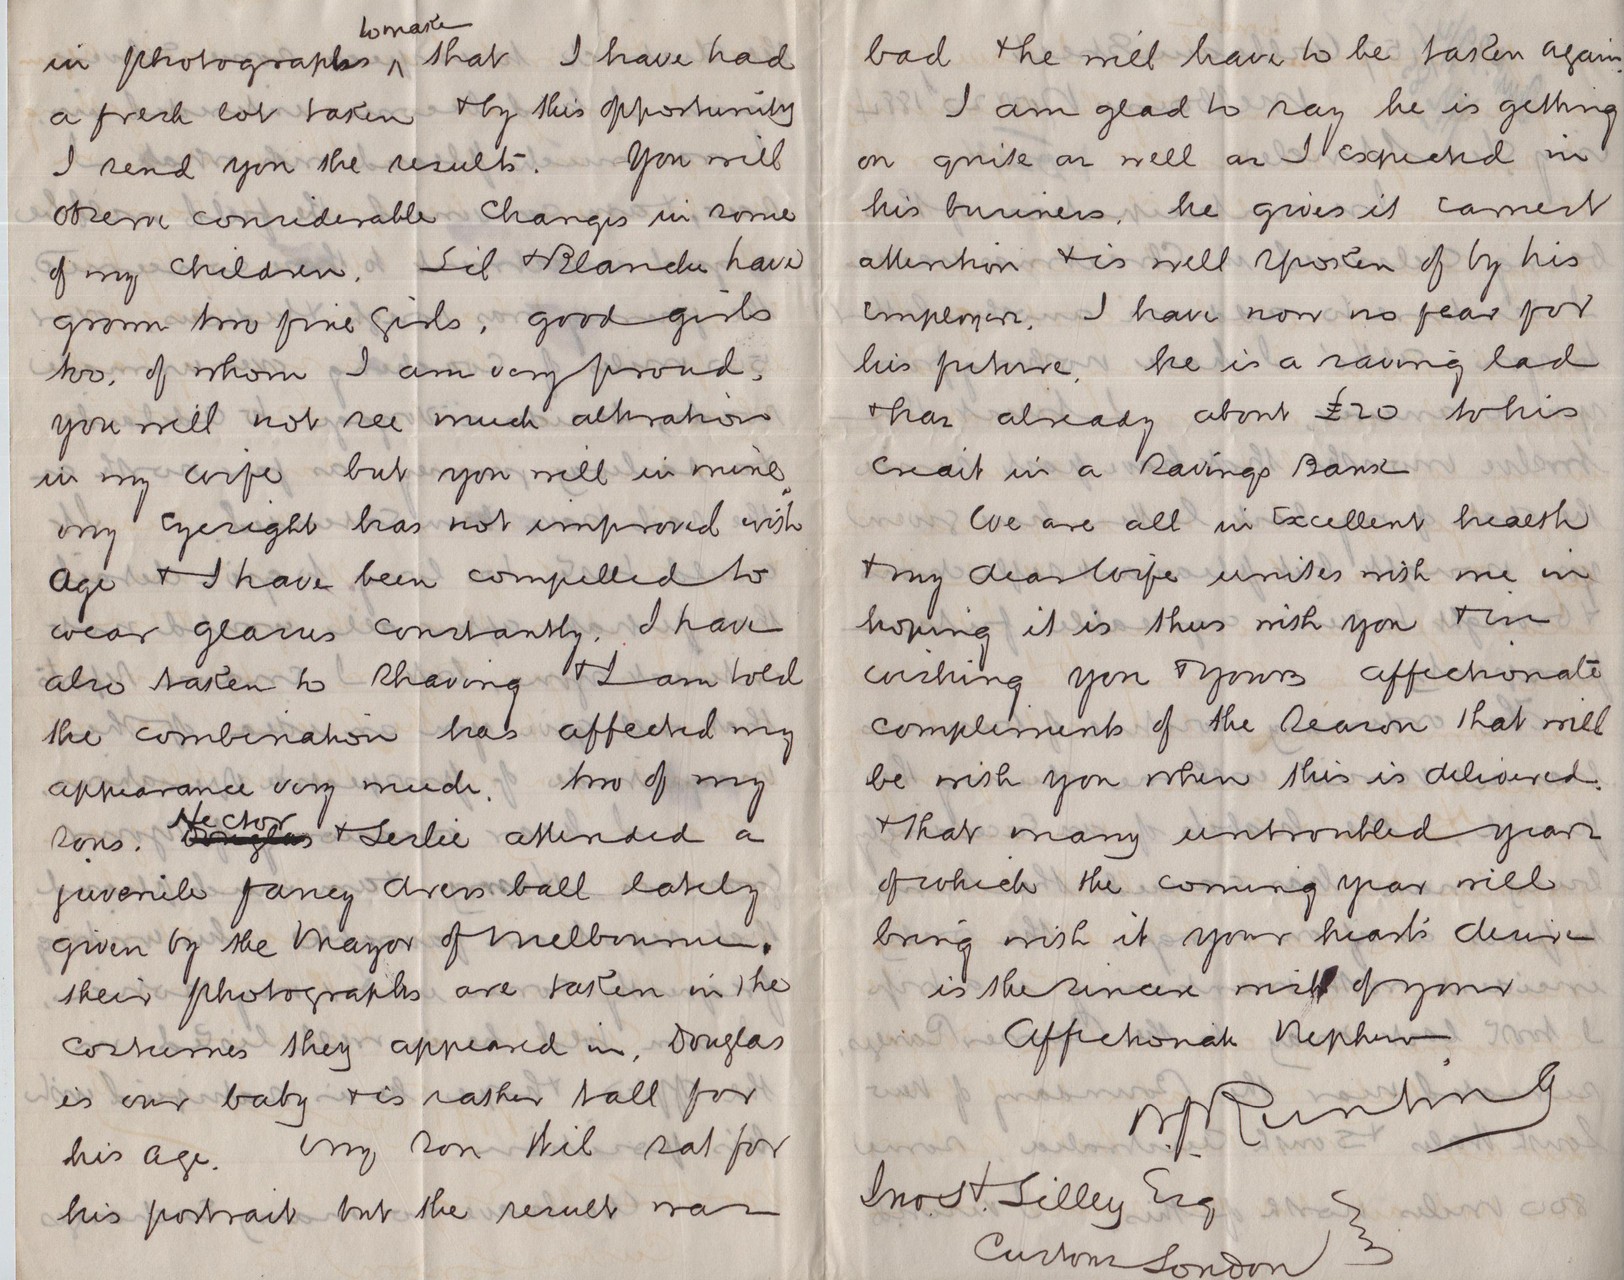 in photographs ^ to make that I have had
a fresh lot taken & by this opportunity
I send you the results. You will
observe considerable changes in some
of my children. Lil & Blanche have
grown two fine girls, good girls
too, of whom I am very proud.
You will not see much alteration
in my wife but you will in mine.
my Eyesight has not improved with
Age & I have been compelled to
wear glasses constantly. I have
also taken to shaving & I am told
the combination has affected my
appearance very much. two of my
sons. ~~Douglas~~ Hector & Leslie attended a
juvenile fancy dress ball lately
given by the Mayor of Melbourne.
their photographs are taken in the
costumes they appeared in, Douglas
is our baby & is rather tall for
his age. My son Wil sat for
his portrait but the result was
bad & he will have to be taken again.
I am glad to say he is getting
on quite as well as I expected in
his business, he gives it earnest
attention & is well spoken of by his
Employers. I have now no fear for
his future, he is a saving lad
& has already about £20 to his
credit in a Savings Bank
We are all in Excellent health
& my dear Wife unites with me in
hoping it is thus with you & in
wishing you & yours affectionate
compliments of the Season that will
be with you when this is delivered.
& that many untroubled years
of which the coming year will
bring with it your heart's desire
is the sincere wish of your
Affectionate Nephew
Runting
Jno. St. Lilley Esq
Customs London